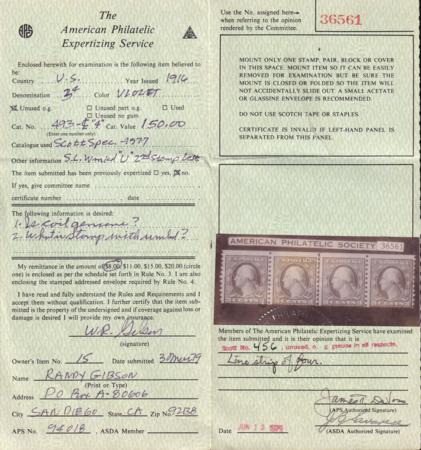 The
American Philatelic
Expertizing Service
APS
Enclosed herewith for examination is the following item believed to
be:
Country U.S. Year Issued 1916
Denomination 3¢ Color VIOLET
Unused o.g. Unused part o.g. Used
Unused no gum
Cat. No. Cat. Value 150.00
(Enter one number only)
Catalogue used Scott Spec. - 1977
Other information
The item submitted has been previously expertized yes, no.
If yes, give committee name
certificate number date
The following information is desired:
1. Is coil genuine?
2.
My remittance in the amount of $8.00, $11.00, $15.00, $20.00 (circle
one) is enclosed as per the schedule set forth in Rule No. 3. I am also
enclosing the stamped addressed envelope required by Rule No. 4.
I have read and fully understand the Rules and Requirements and I
accept them without qualification. I further certify that the item sub-
mitted is the property of the undersigned and if coverage against loss or
damage is desired I will provide my own insurance.
(signature)
Owner's Item No. 15 Date submitted
Name RANDY GIBSON
(Print or Type)
Address PO Box A-80606
City SAN DIEGO State CA Zip No. 92138
APS No. 94018 ASDA Member
Use the No. assigned here
when referring to the opinion
rendered by the Committee.
36561
MOUNT ONLY ONE STAMP, PAIR, BLOCK OR COVER
IN THIS SPACE. MOUNT ITEM SO IT CAN BE EASILY
REMOVED FOR EXAMINATION BUT BE SURE THE
MOUNT IS CLOSED OR FOLDED SO THE ITEM WILL
NOT ACCIDENTALLY SLIDE OUT. A SMALL ACETATE
OR GLASSINE ENVELOPE IS RECOMMENDED.
DO NOT USE SCOTCH TAPE OR STAPLES.
CERTIFICATE IS INVALID IF LEFT-HAND PANEL IS
SEPARATED FROM THIS PANEL.
AMERICAN PHILATELIC SOCIETY 36561
Members of The American Philatelic Expertizing Service have examined
the item submitted and it is their opinion that it is
Scott No. 456, unused, o.g. genuine in all respects.
Line strip of four.
(APS Authorized Signature)
(ASDA Authorized Signature)
Date JUN 13